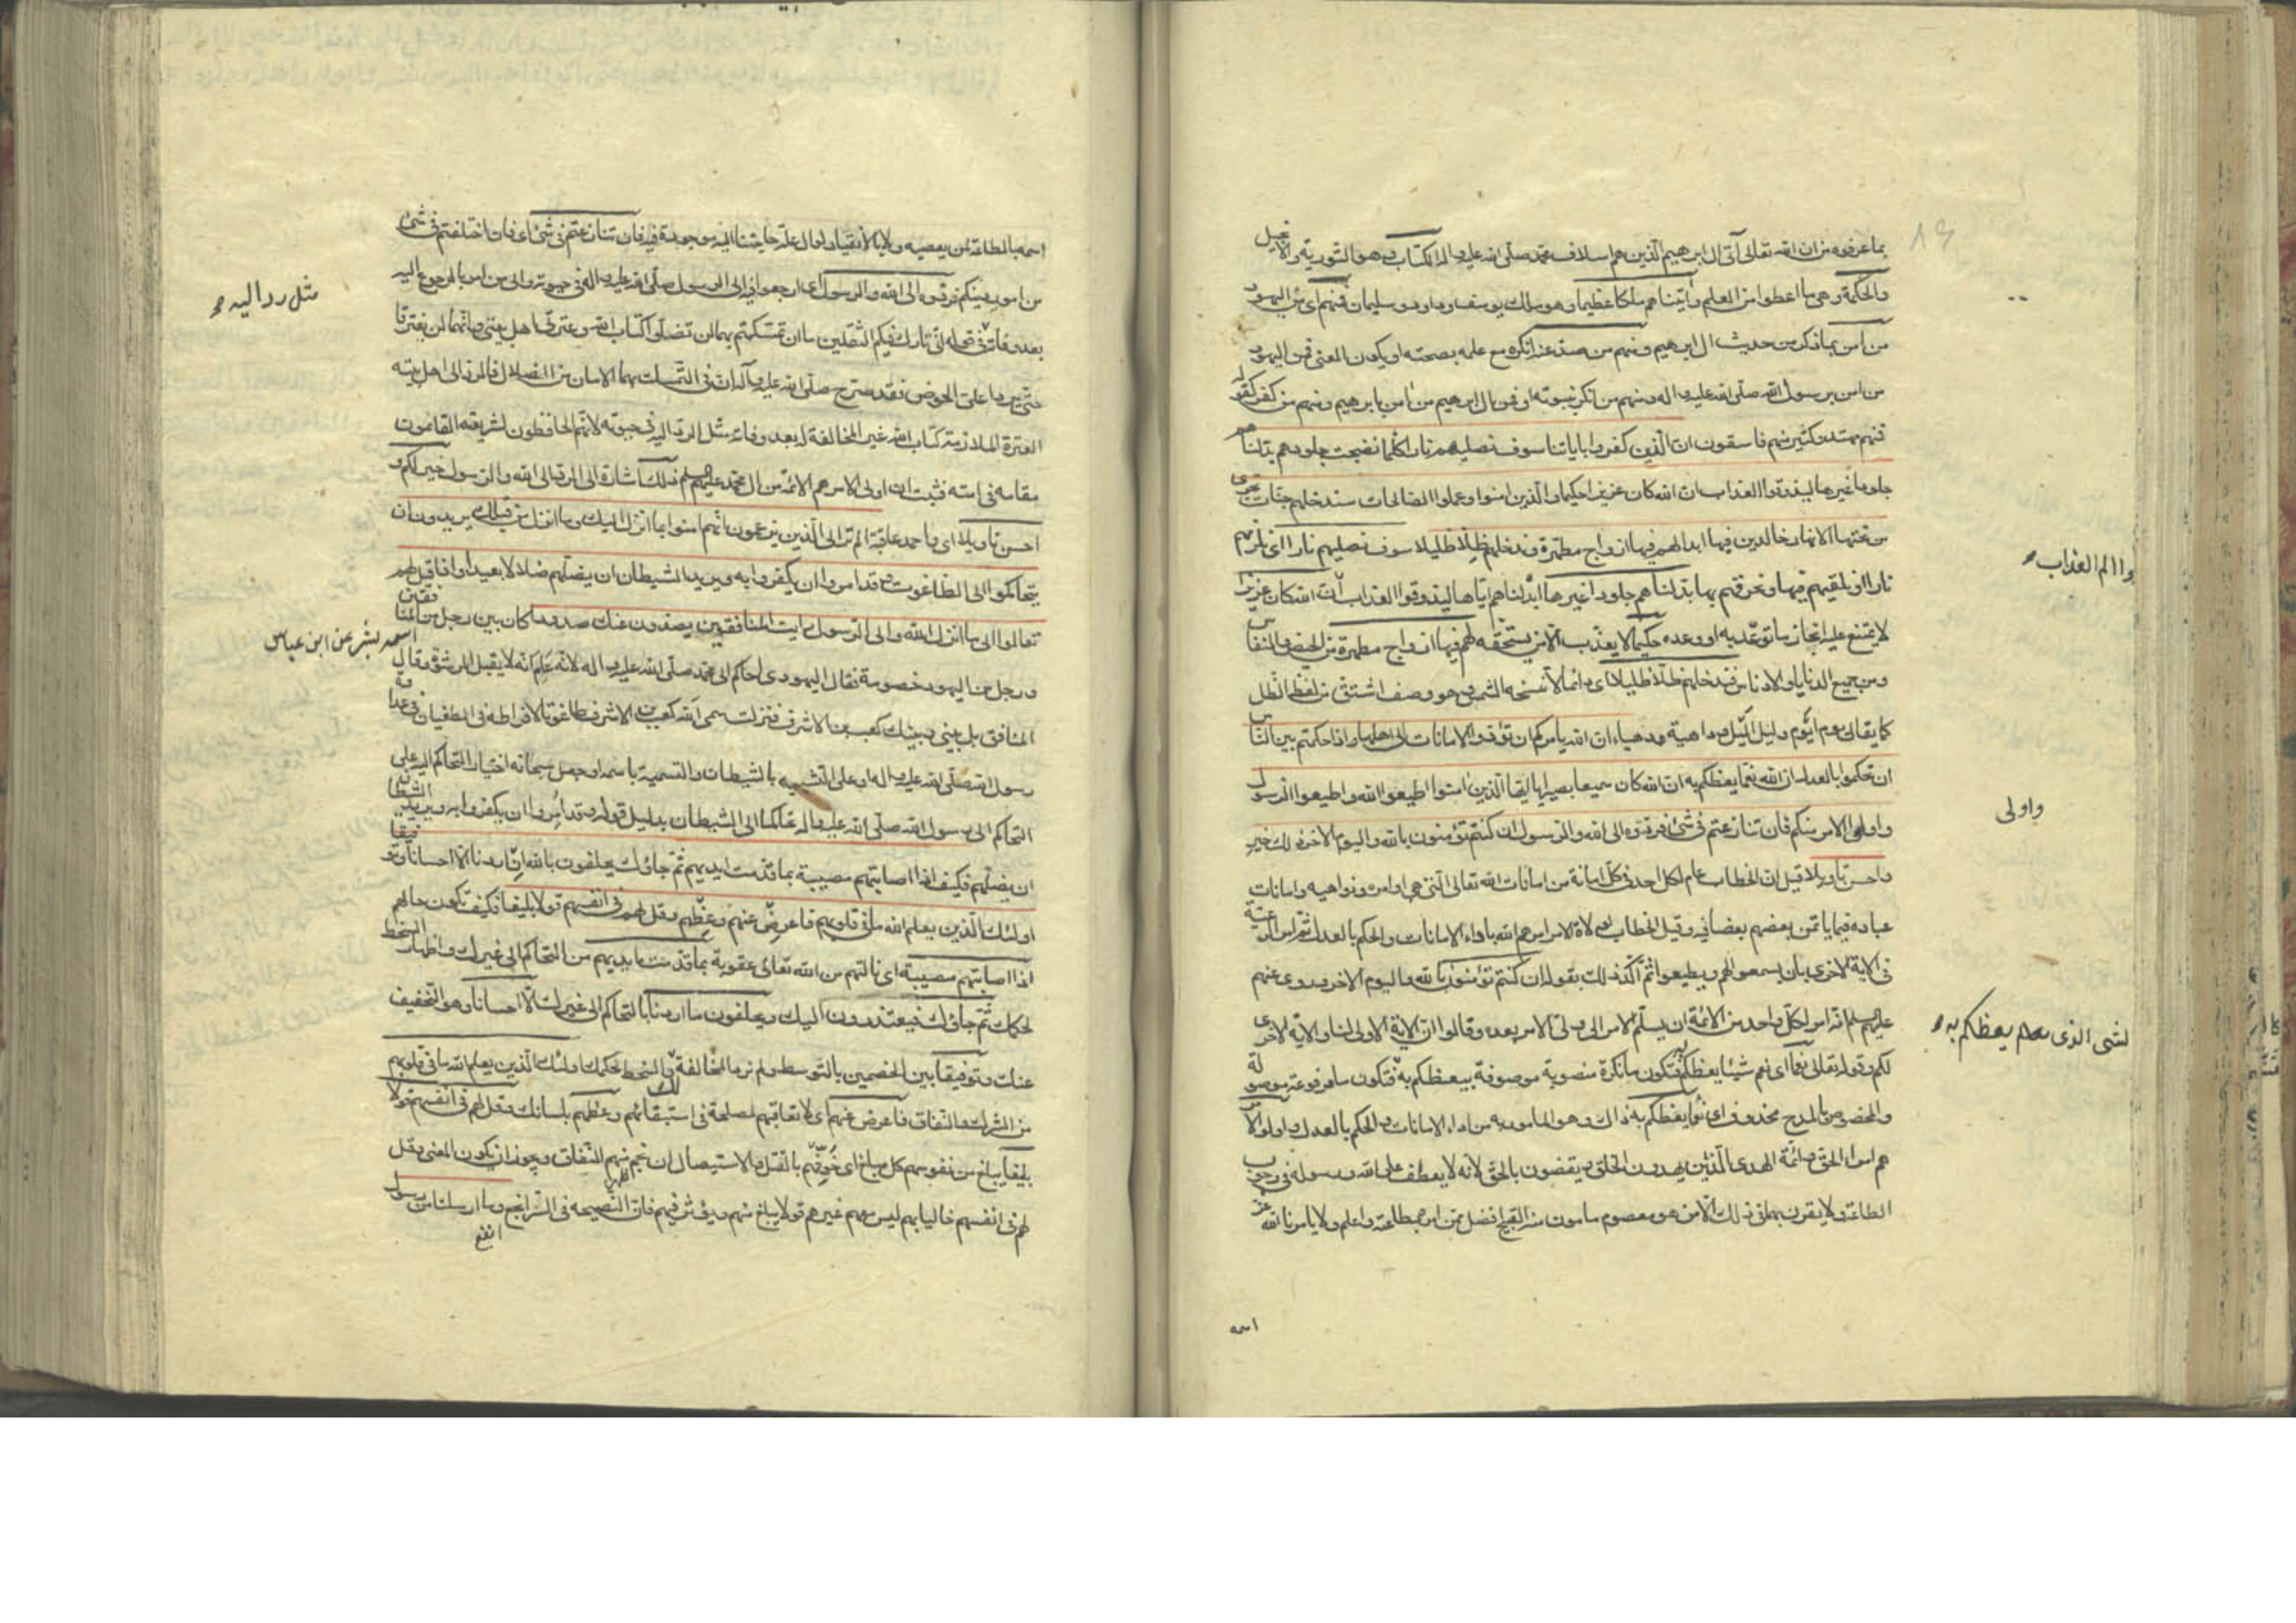 بما عرفوه من ان الله تعالى آتى ال ابرهيم الذين هم اسلاف محمد صلى الله عليه واله الكتاب وهو التورية والانجيل
والحكمة وهي ما اعطوا من العلم وآتيناهم ملكا عظيما وهو ملك يوسف وداود وسليمان فمنهم اى من اليهود
من امن بما ذكر من حديث ال ابرهيم ومنهم من صد عنه انكره مع علمه بصحته او يكون المعنى فمن اليهود
من امن برسول الله صلى الله عليه واله ومنهم من انكر نبوته او فمن ال ابرهيم من امن بابرهيم ومنهم من كفر كقوله
فمنهم مهتد وكثير منهم فاسقون ان الذين كفروا باياتنا سوف نصليهم نارا كلما نضجت جلودهم بدلناهم
جلودا غيرها ليذوقوا العذاب ان الله كان عزيزا حكيما والذين امنوا وعملوا الصالحات سندخلهم جنات تجرى
من تحتها الانهار خالدين فيها ابدا لهم فيها ازواج مطهرة وندخلهم ظلا ظليلا سوف نصليهم نارا اى نلزمهم
نارا او نلقيهم فيها ونحرقهم بها بدلناهم جلودا غيرها ابدلناهم اياها ليذوقوا العذاب ان الله كان عزيزا
لا يمتنع عليه انجاز ما توعد به او وعده حكيما لا يعذب الا من يستحقه لهم فيها ازواج مطهرة من الحيض والنفاس
ومن جميع الدنايا والادناس وندخلهم ظلا ظليلا اى دائما لا تنسخه الشمس وهو وصف اشتق من لفظ الظل
كما يقال يوم ايوم وليل اليل وداهية دهياء ان الله يامركم ان تؤدوا الامانات الى اهلها واذا حكمتم بين الناس
ان تحكموا بالعدل ان الله نعما يعظكم به ان الله كان سميعا بصيرا يا ايها الذين امنوا اطيعوا الله واطيعوا الرسول
واولى الامر منكم فان تنازعتم فى شئ فردوه الى الله والرسول ان كنتم تؤمنون بالله واليوم الاخر ذلك خير
واحسن تأويلا قيل ان الخطاب عام لكل احد فى كل امانة من امانات الله تعالى التى هى اوامره ونواهيه وامانات
عباده فيما ياتمن بعضهم بعضا فيه وقيل الخطاب لولاة الامر امرهم الله باداء الامانات والحكم بالعدل ثم امر الرعية
فى الاية الاخرى بان يسمعوا لهم ويطيعوا ثم اكد ذلك بقوله ان كنتم تؤمنون بالله واليوم الاخر وروى عنهم
عليهم السلم انه امر لكل واحد من الائمة ان يسلم الامر الى ولى الامر بعده وقالوا ان الاية الاولى لنا والاية الاخرى
لكم وقوله تعالى نعما اى نعم شيئا يعظكم به فتكون ما نكرة منصوبة موصوفة بيعظكم به فتكون ما مرفوعة موصولة
والمخصوص بالمدح محذوف اى نعما يعظكم به ذاك وهو المامور به من اداء الامانات والحكم بالعدل واولوا الامر
هم امراء الحق وائمة الهدى الذين يهدون الخلق ويقضون بالحق لانه لا يعطف على الله ورسوله فى وجوب
الطاعة ولا يقرن بهما فى ذلك الا من هو معصوم مامون منه القبيح افضل ممن امر بطاعته واعلم ولا يامرنا الله عز
اسمه
واالم العذاب
واولى
لشى الذى يعظكم به
اسمه بالطاعة لمن يعصيه ولا بالانقياد لوال علة حاجتنا اليه موجودة فيه فان تنازعتم فى شئ اى فان اختلفتم فى شئ
من امور دينكم فردوه الى الله والرسول اى ارجعوا فيه الى الرسول صلى الله عليه واله فى حيوته والى من امر بالرجوع اليه
بعد وفاته فى قوله انى تارك فيكم الثقلين ما ان تمسكتم بهما لن تضلوا كتاب الله وعترتى اهل بيتى وانهما لن يفترقا
حتى يردا على الحوض فقد صرح صلى الله عليه وآله ان فى التمسك بهما الامان من الضلال فالرد الى اهل بيته
العترة الملازمة كتاب الله غير المخالفة له بعد وفاته مثل الرد اليه فى حيوته لانهم الحافظون لشريعته القائمون
مقامه فى امته فثبت ان اولى الامر هم الائمة من ال محمد عليهم السلم ذلك اشارة الى الرد الى الله والرسول خير لكم و
احسن تاويلا اى واحمد عاقبة الم تر الى الذين يزعمون انهم امنوا بما انزل اليك وما انزل من قبلك يريدون ان
يتحاكموا الى الطاغوت وقد امروا ان يكفروا به ويريد الشيطان ان يضلهم ضلالا بعيدا واذا قيل لهم
تعالوا الى ما انزل الله والى الرسول رايت المنافقين يصدون عنك صدودا كان بين رجل من المنافقين
ورجل من اليهود خصومة فقال اليهودى احاكم الى محمد صلى الله عليه واله لانه علم انه لا يقبل الرشوة وقال
المنافق بل بينى وبينك كعب بن الاشرف فنزلت سمى الله كعب بن الاشرف طاغوتا لافراطه فى الطغيان وفى عداوة
رسول الله صلى الله عليه واله او على التشبيه بالشيطان والتسمية باسمه او جعل سبحانه اختيار التحاكم اليه على
التحاكم الى رسول الله صلى الله عليه واله تحاكما الى الشيطان بدليل قوله وقد امروا ان يكفروا به ويريد الشيطان
ان يضلهم فكيف اذا اصابتهم مصيبة بما قدمت ايديهم ثم جاؤك يحلفون بالله ان اردنا الا احسانا وتوفيقا
اولئك الذين يعلم الله ما فى قلوبهم فاعرض عنهم وعظهم وقل لهم فى انفسهم قولا بليغا فكيف تكون حالهم
اذا اصابتهم مصيبة اى نالتهم من الله تعالى عقوبة بما قدمت ايديهم من التحاكم الى غيرك واظهار السخط
لحكمك ثم جاؤك فيعتذرون اليك ويحلفون ما اردنا بالتحاكم الى غيرك الا احسانا وهو التخفيف
عنك وتوفيقا بين الخصمين بالتوسط ولم نرد المخالفة لك والسخط لحكمك اولئك الذين يعلم الله ما فى قلوبهم
من الشرك والنفاق فاعرض عنهم اى لا تعاقبهم لمصلحة فى استبقائهم وعظهم بلسانك وقل لهم فى انفسهم قولا
بليغا يبلغ من نفوسهم كل مبلغ اى خوفهم بالقتل والاستيصال ان نجم منهم النفاق ويجوز ان يكون المعنى وقل
لهم فى انفسهم خاليا بهم ليس معهم غيرهم قولا يبلغ منهم ويؤثر فيهم فان النصيحة فى السر انجع وما ارسلنا من رسول
انفع
مثل رد اليه
اسمه بشر عن ابن عباس